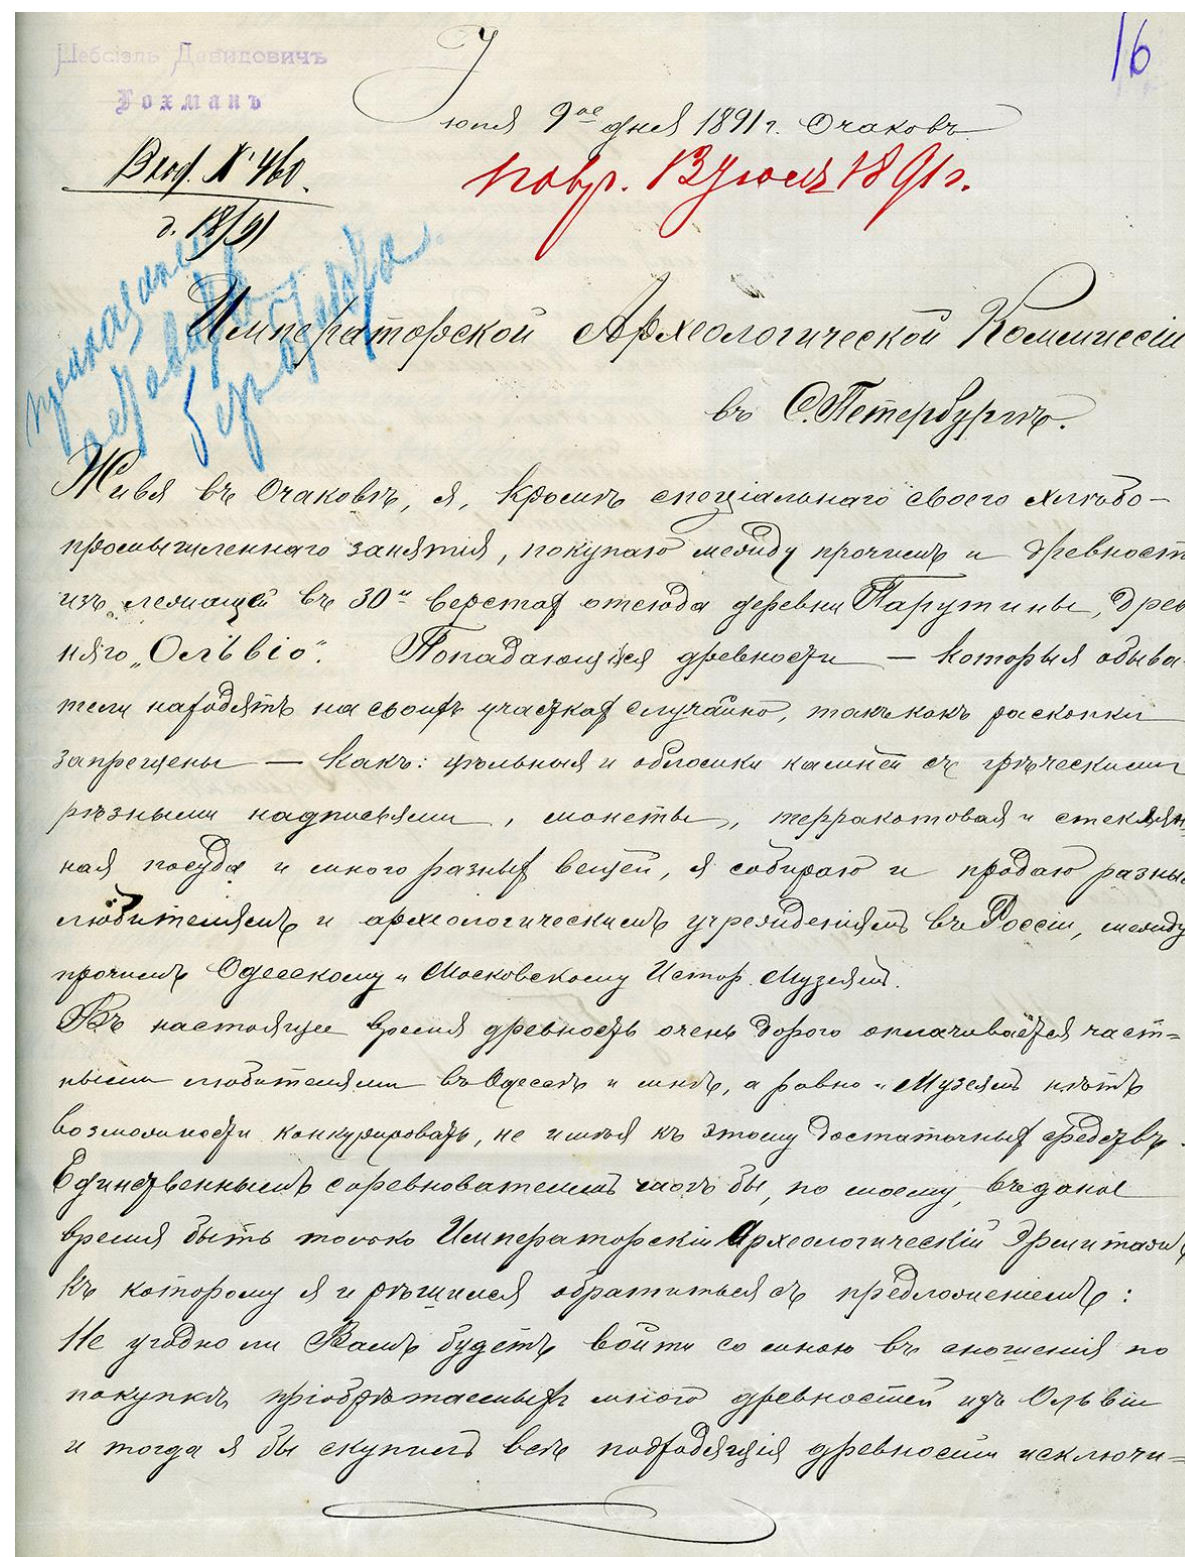 Шебсіэль Давидовичъ
Гохманъ
16
Іюля 9го дня 1891 г. Очаковъ
Вход. № 460.
д. 18/91
пол. 13 Іюля 1891 г.
Императорской Археологической Коммиссіи
въ С. Петербургѣ.
Живя въ Очаковѣ, я, кромѣ спеціальнаго своего хлѣбо-
промышленнаго занятія, покупаю между прочимъ и древност
изъ лежащей въ 30и верстах отсюда деревни Парутины, Древ
няго „Ольвіо". Попадающіяся древности — которыя обыва-
тели находятъ на своихъ участках случайно, такъ какъ раскопки
запрещены — какъ: цѣльныя и обломки камней съ грѣческими
рѣзными надписями, монеты, терракотовая и стеклян-
ная посуда и много разных вещей, я собираю и продаю разны
любителямъ и археологическимъ учрежденіямъ въ Россіи, между
прочимъ Одесскому и Московскому Истор. Музеямъ.
Въ настоящее время древность очень дорого оплачивается част=
ными любителями въ Одессѣ и мнѣ, а равно и Музеямъ нѣтъ
возможности конкурировать, не имѣя къ этому достаточных средствъ.
Единственнымъ соревнователемъ могъ бы, по моему, въ даное
время быть только Императорскій Археологическій Эрмитажъ,
къ которому я и рѣшился обратиться съ предложеніемъ:
Не угодно ли Вамъ будетъ войти со мною въ сношенія по
покупкѣ пріобрѣтаемыхъ мною древностей изъ Ольвіи
и тогда я бы скупилъ всѣ подходящія древности исключи=